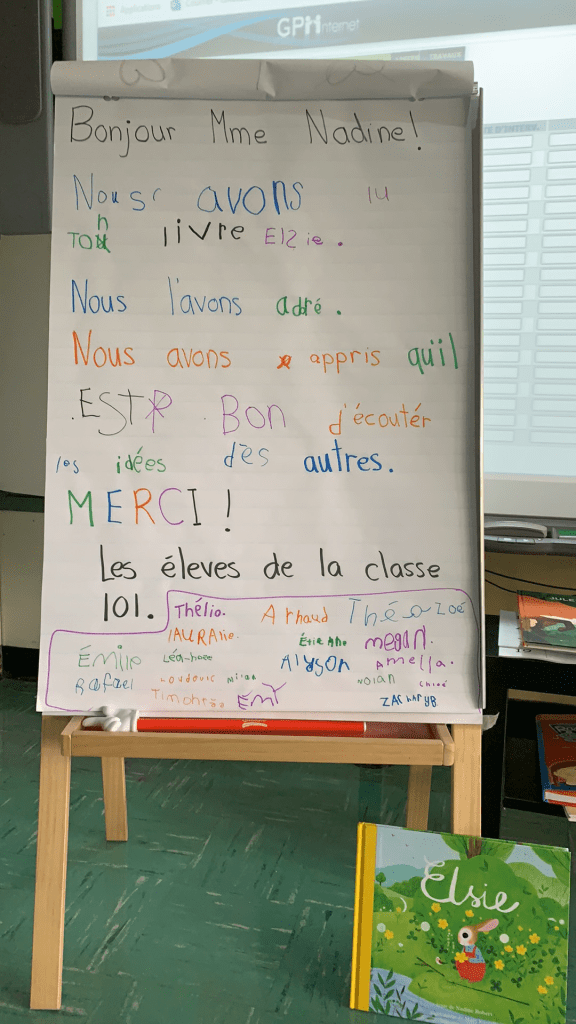 Applications
GPInternet
Bonjour Mme Nadine!
Nous avons lu
Ton livre Elzie.
Nous l'avons adré.
Nous avons appris qu'il
EST Bon d'écoutér
les idées des autres.
MERCI!
Les éleves de la classe
101. Thélio. Arnaud Théo Zoé
LAURAlie. megan.
Émile Léa-Alyson Amelia.
Rafael Loudovic Milan Nolan Chloé
Timothée EMY ZACHARYB
Elsie